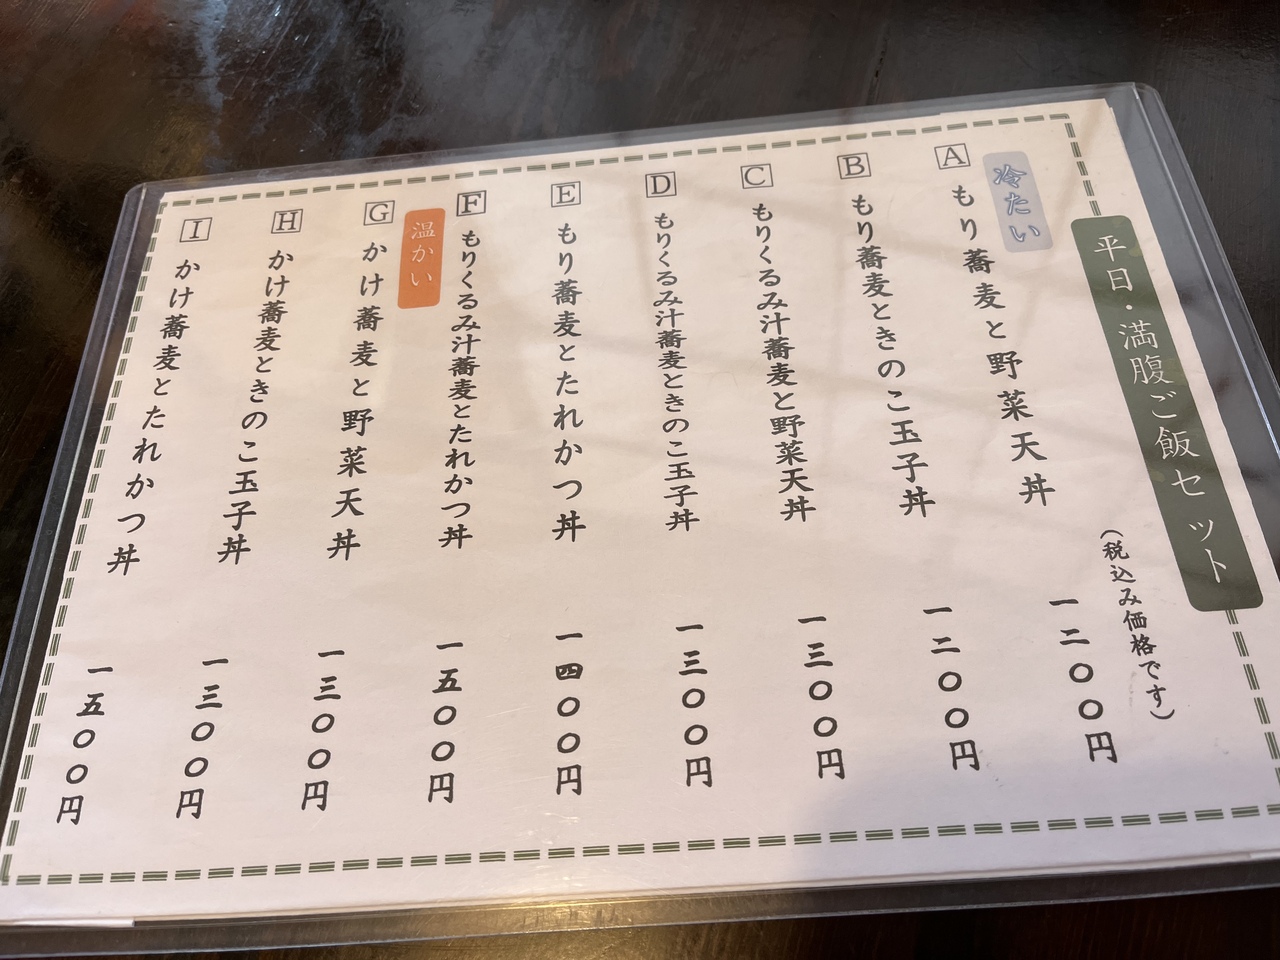 平日・満腹ご飯セット
（税込み価格です）
冷たい
A もり蕎麦と野菜天丼 一二〇〇円
B もり蕎麦ときのこ玉子丼 一二〇〇円
C もりくるみ汁蕎麦と野菜天丼 一三〇〇円
D もりくるみ汁蕎麦ときのこ玉子丼 一三〇〇円
E もり蕎麦とたれかつ丼 一四〇〇円
F もりくるみ汁蕎麦とたれかつ丼 一五〇〇円
温かい
G かけ蕎麦と野菜天丼 一三〇〇円
H かけ蕎麦ときのこ玉子丼 一三〇〇円
I かけ蕎麦とたれかつ丼 一五〇〇円